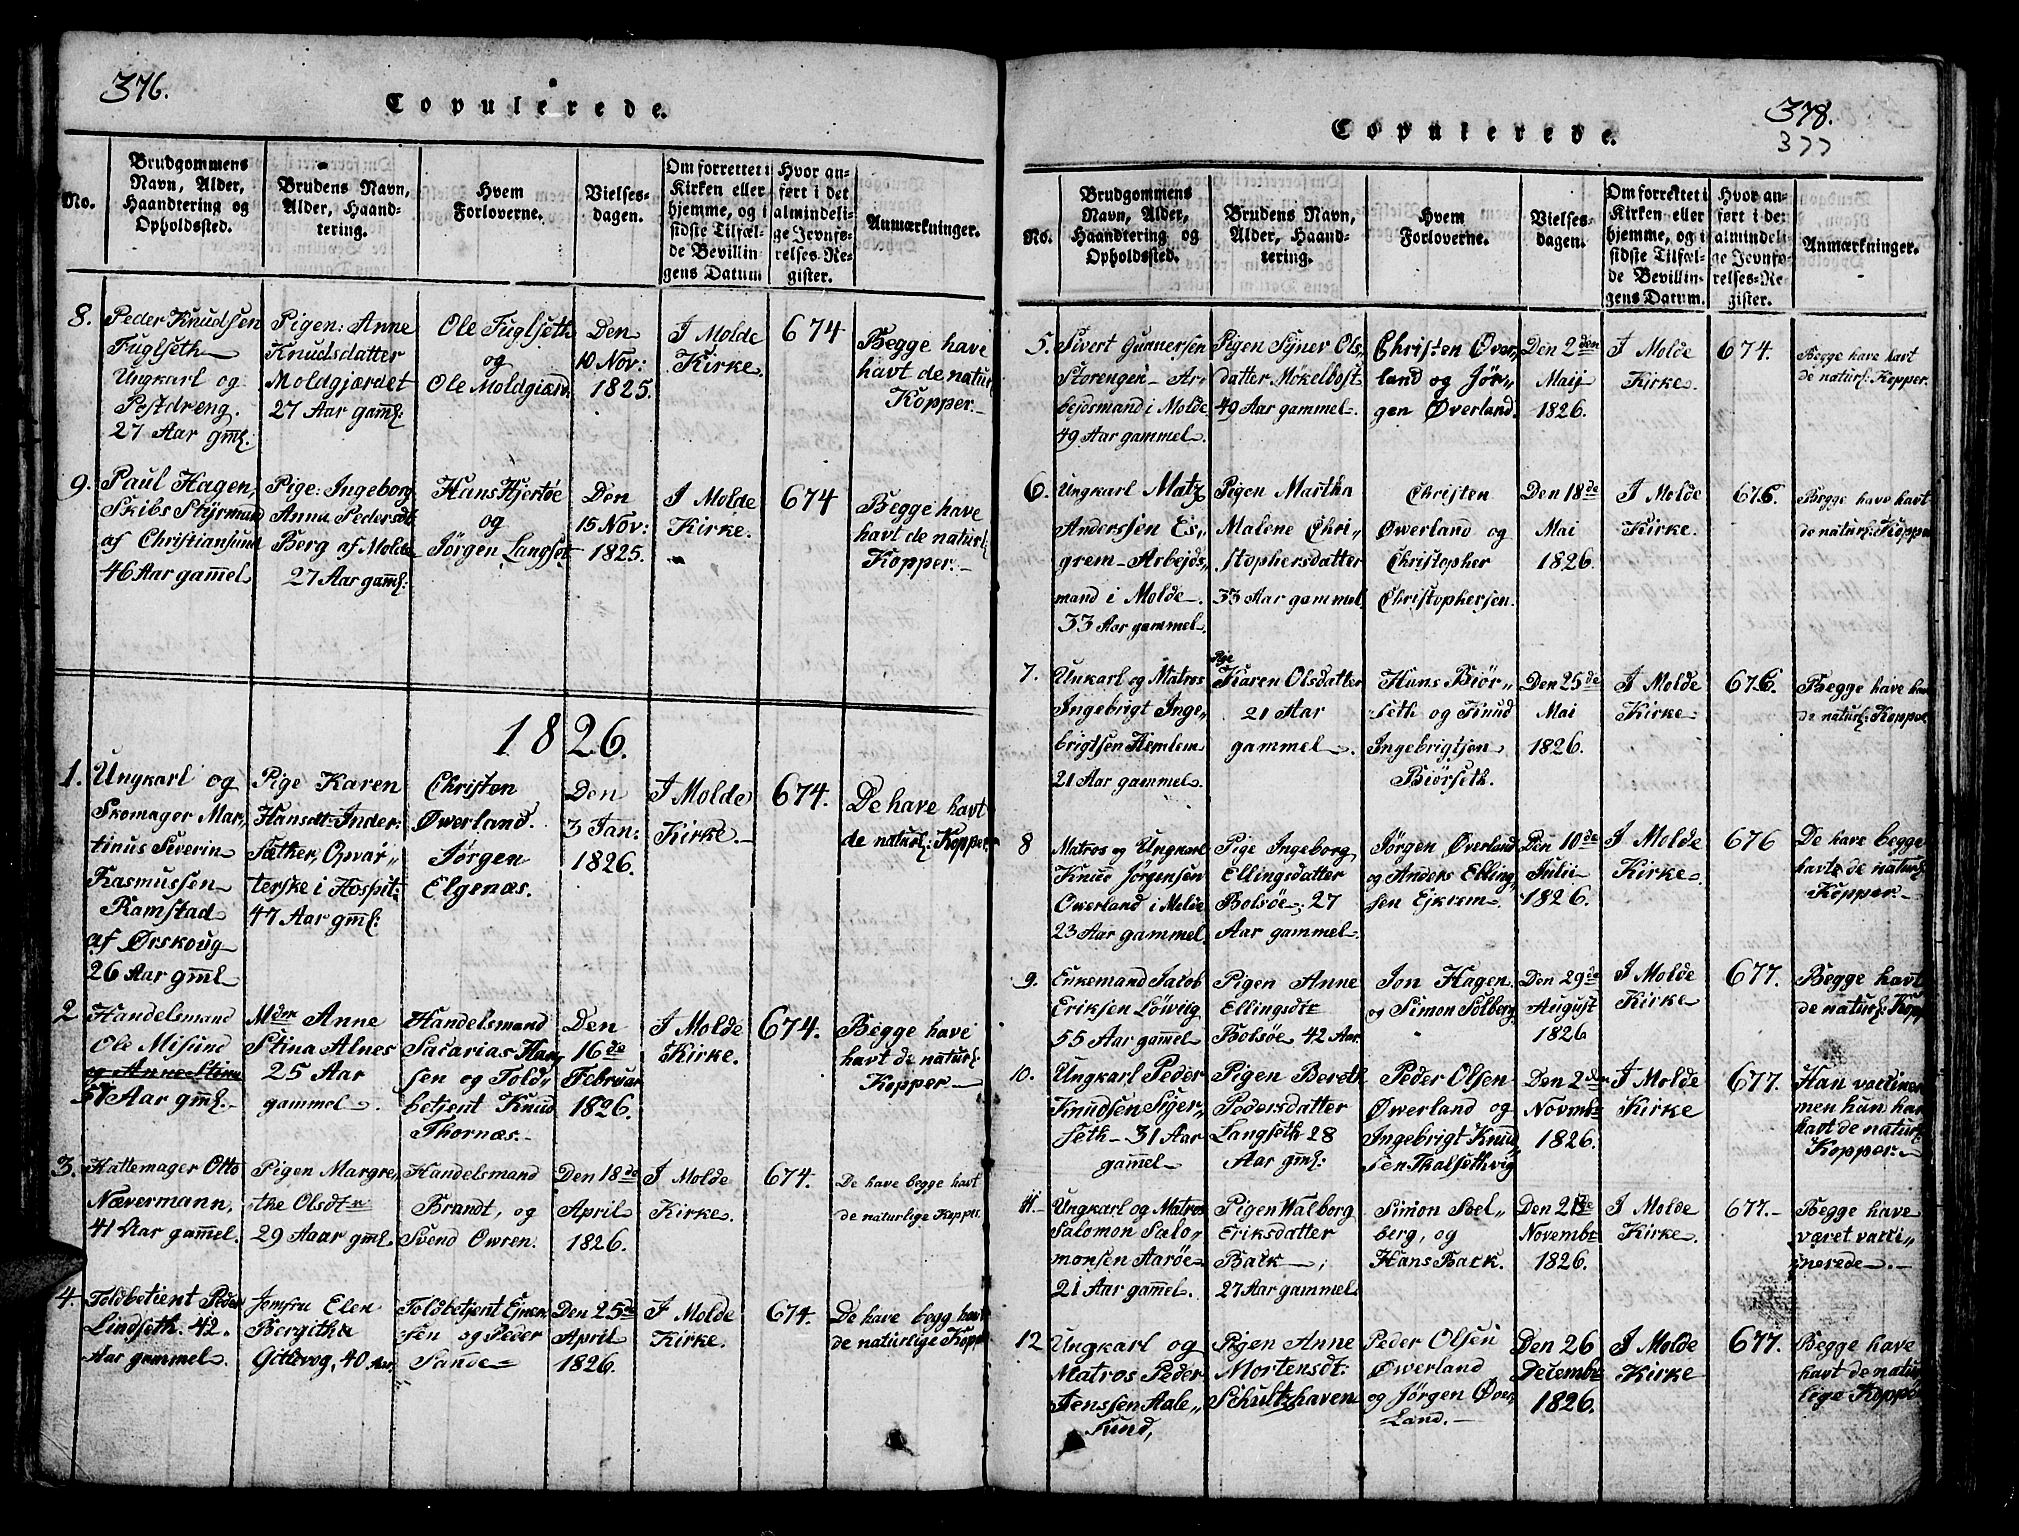 376.
Copulerede.
No.
Brudgommens
Navn, Alder,
Haandtering og
Opholdssted.
Brudens Navn,
Alder, Haand-
tering.
Hvem
Forloverne.
Vielses-
dagen.
Om forrettet i
Kirken eller
hjemme, og i
sidste Tilfæl-
de Bevillin-
gens Datum
Hvor an-
ført i det
almindeli-
ge Jevnfø-
relses-Re-
gister.
Anmærkninger.
8.
Peder Knudsen
Fuglseth
Ungkarl og
Postdreng.
27 Aar gml:
Pigen: Anne
Knudsdatter
Moldgjærdet
27 Aar gaml:
Ole Fuglseth
og
Ole Moldgiærd.
Den
10 Nov:
1825.
I Molde
Kirke.
674
Begge have
havt de naturl
Kopper.
9.
Paul Hagen,
Skibs Styrmand
af Christiansund
46 Aar gammel
Pige: Ingeborg
Anna Pedersdt
Berg af Molde
27 Aar gaml:
Hans Hjertøe
og
Jørgen Langset
Den
15 Nov:
1825.
I Molde
Kirke.
674
Begge have
havt de naturl
Kopper.
1826.
1.
Ungkarl og
Skomager Mar,,
tinus Severin
Rasmussen
Ramstad
af Ørskoug
26 Aar gml
Pige Karen
Hansdt Inder:
Sæther, Opvar,,
terske i Hospit:
47 Aar gml:
Christen
Øwerland.
Jørgen
Elgenæs.
Den
3 Jan:
1826.
I Molde
Kirke.
674.
De have havt
de naturl: Kopper
2
Handelsmand
Ole Misund
og Anne Stina
37 Aar gml.
Mdm Anne
Stina Alnes
25 Aar
gammel.
Handelsmand
Sacarias Han,,
sen og Told,,
betjent Knud
Thornæs.
Den
16de
Februar
1826.
I Molde
Kirke.
674.
Begge have
havt de naturl.
Kopper
3.
Hattemager Otto
Nævermann,
41 Aar gammel.
Pigen Margre,,
the Olsdtr
29 Aaar gml.
Handelsmand
Brandt, og
Svend Owren.
Den 18de
April
1826.
I Molde
Kirke.
674.
De have begge havt
de naturlige Kopper.
4.
Toldbetient Peder
Lindseth. 42.
Aar gammel.
Jomfru Elen
Bergitha
40 Aar
Toldbetjent
sen og Peder
Sande
Den 25de
April
1826.
I Molde
Kirke.
674.
De have begg havt
de naturlige Kopp
378.
377
Copulerede.
No.
Brudgommens
Navn, Alder,
Haandtering og
Opholdssted.
Brudens Navn,
Alder, Haand-
tering.
Hvem
Forloverne.
Vielses-
dagen.
Om forrettet i
Kirken eller
hjemme, og i
sidste Tilfæl-
de Bevillin-
gens Datum.
Hvor an-
ført i det
almindeli-
ge Jevnfø-
relses-Re-
gister.
Anmærkninger.
5.
Sivert Gunnersen
Storengen Ar,,
bejdsmand i Molde
49 Aar gammel.
Pigen Syner Ols,,
datter Mökelbost
49 Aar gammel.
Christen Øver,,
land og Jør,,
gen Øverland.
Den 2den
Maij
1826.
I Molde
Kirke.
674.
Begge have havt
de naturl: Kopper.
6.
Ungkarl Matz
Anderssen Es,,
grem Arbejds,,
mand i Molde.
33 Aar gammel.
Pigen Martha
Malene Chri,,
stophersdatter
33 Aar gammel,
Christen
Øwerland og
Christopher
Christophersen.
Den 18de
Mai
1826.
I Molde
Kirke.
676.
Begge have havt
de naturl: Kopper
7.
Unkarl og Matros
Ingebrigt Inge,,
brigtsen Hemlem
21 Aar gammel.
Pige
Karen Olsdatter
21 Aar
gammel.
Hans Biør,,
seth og Knud
Ingebrigtsen
Biørseth.
Den 25de
Mai
1826.
I Molde
Kirke
676.
Begge have hav
de naturl: Kopper
8
Matros og Ungkarl
Knud Jørgensen
Owerland i Molde
23 Aar gammel.
Pige Ingeborg
Ellingsdatter
Bolsöe 27
Aar gammel.
Jörgen Øverland
og Anders Elling,,
sen Ejkrem.
Den 10de
Julii
1826.
I Molde
Kirke.
676
De have begge
havt de naturl:
Kopper.
9.
Enkemand Jacob
Eriksen Löwiig
55 Aar gammel
Pigen Anne
Ellingsdtr
Bolsöe 42 Aar
Jon Hagen
og Simon Solberg
Den 29de
August
1826
I Molde
Kirke
677.
Begge havt
de naturl: Kopp
10.
Ungkarl Peder
Knudsen Siger,,
seth 31 Aar
gammel
Pigen Bereth
Pedersdatter
Langseth 28
Aar gml:
Peder Olsen
Øwerland og
Ingebrigt Knud
sen Thalsethvig
Den 2den
Novembr
1826.
I Molde
Kirke
677.
Han vaccinere
men hun har
havt de naturl:
Kopper.
11.
Ungkarl og Matros
Salomon Salo,,
monsen Aaröe
21 Aar gammel.
Pigen Walborg
Eriksdatter
Back
27 Aar gammel
Simon Soel,,
berg, og
Hans Back.
Novembr
1826.
I Molde
Kirke.
677.
Begge have
været vacci,,
nerede.
12
Ungkarl og
Matros Peder
Jenssen Aale,,
sund,
Pigen Anne
Mortensdt:
Schultzhaven
Peder Olsen
Øwerland
og Jørgen Øver,,
land.
Den 26
December
1826.
I Molde
Kirke
677.
Begge have
havt de natur
lige Kopper